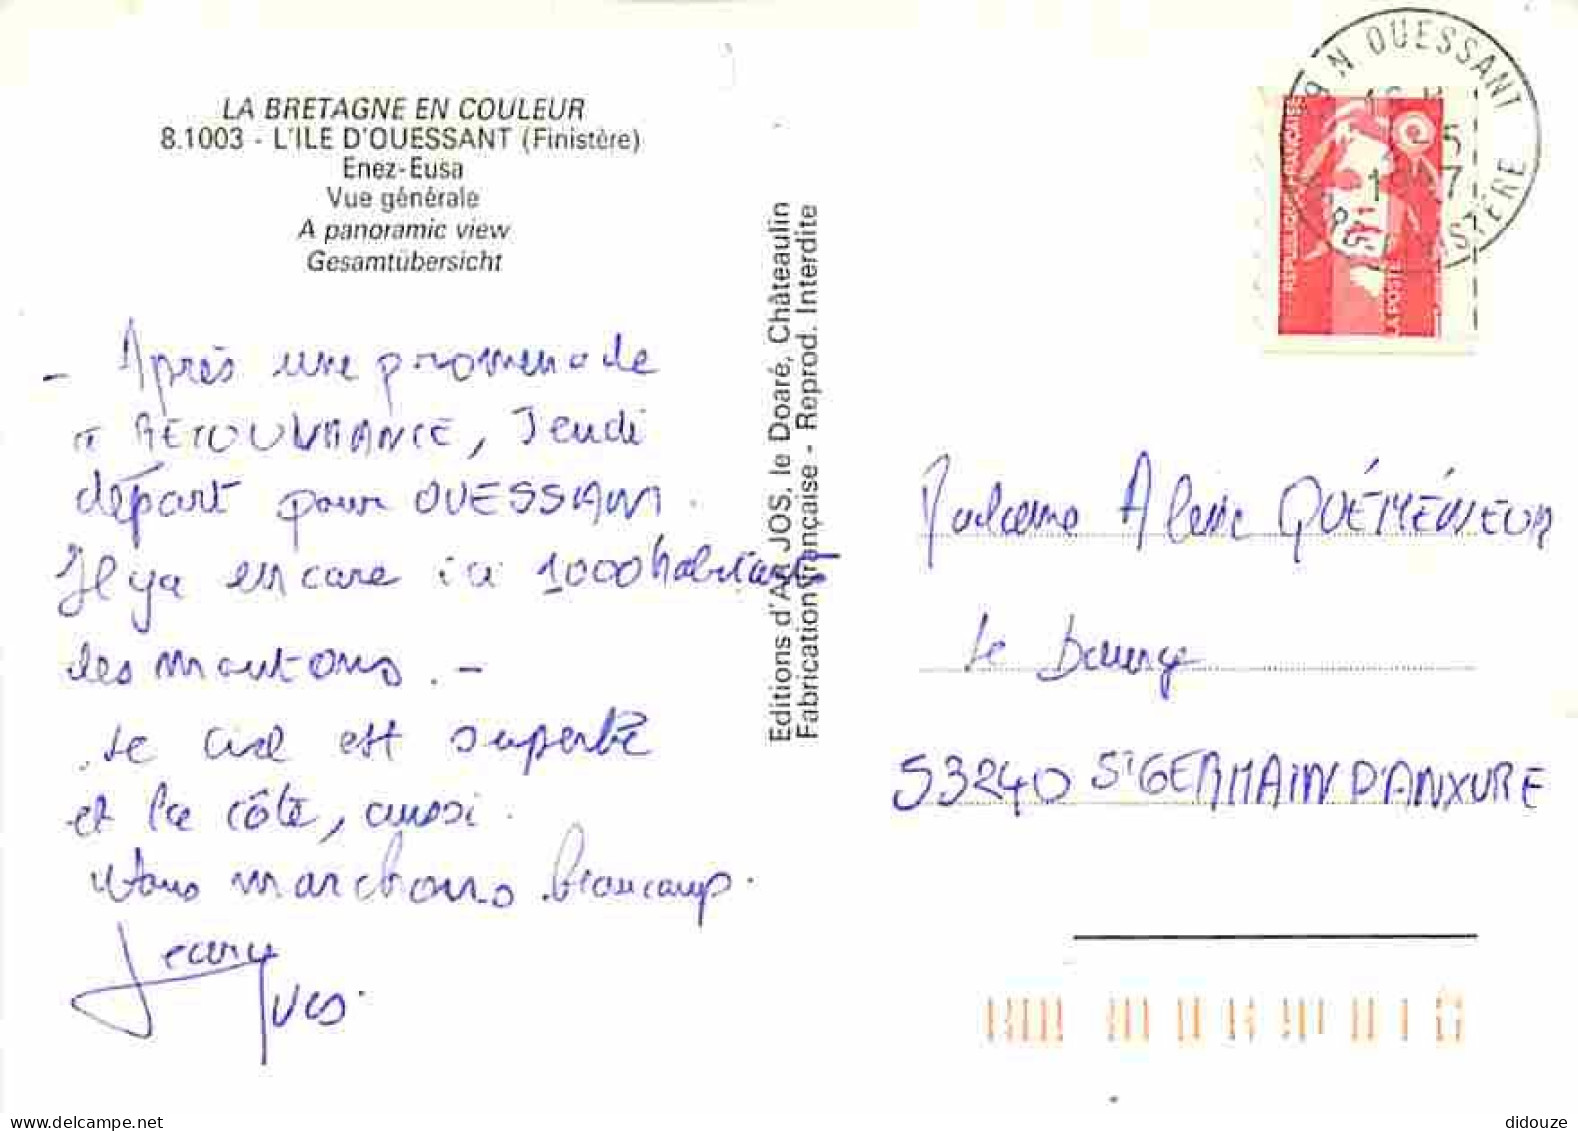 LA BRETAGNE EN COULEUR
8.1003 - L'ILE D'OUESSANT (Finistère)
Enez-Eusa
Vue générale
A panoramic view
Gesamtübersicht
- Après une promenade
RETOUVRANCE, Jeudi
départ pour OUESSANT.
Il y a encore ici 1000 habitants
des moutons. -
Le ciel est superbe
et la côte, aussi.
Nous marchons beaucoup.
Jean
Yves.
Editions d'Art JOS, le Doaré, Châteaulin
Fabrication française - Reprod. Interdite
OUESSANT
REPUBLIQUE FRANÇAISE
LA POSTE
Madame QUÉMÉNEUR
Le Bourg
53240 St GERMAIN D'ANXURE
www.delcampe.net
didouze